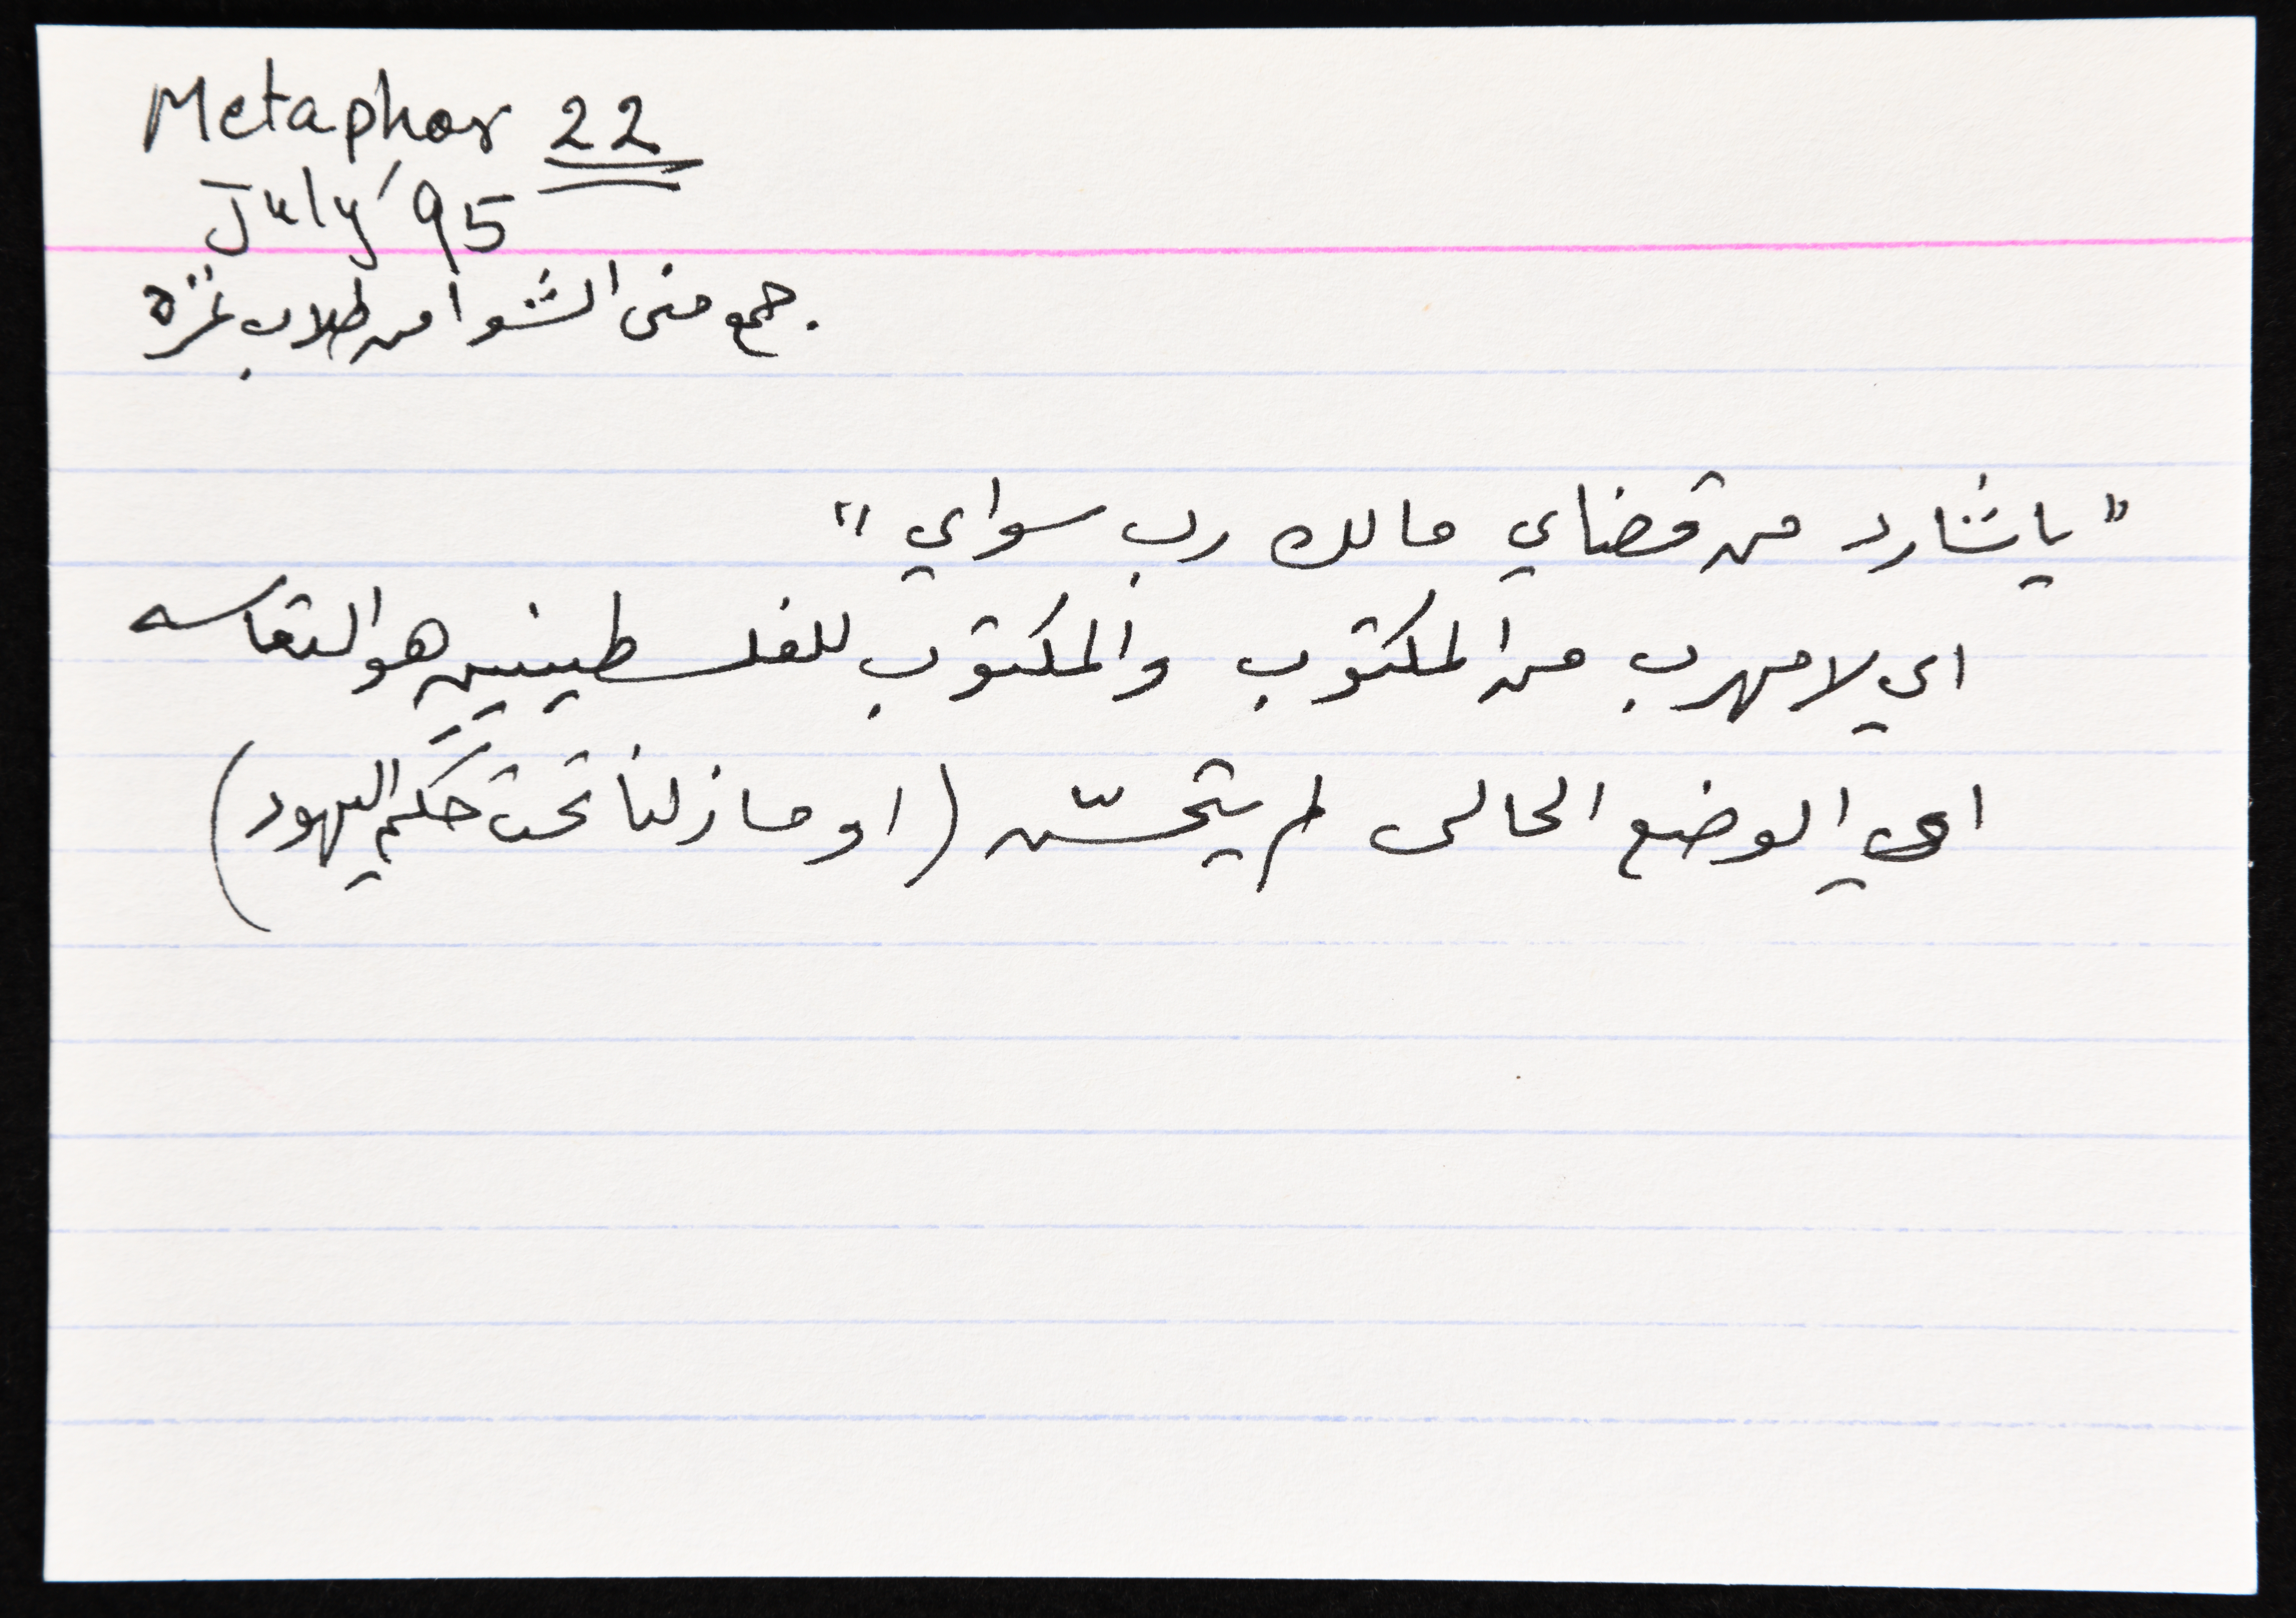 Metaphor 22
July '95
جمع منى الشوا من طلاب غزة.
"يا شارد من قضاي مالك رب سواي"
اي لا مهرب من المكتوب والمكتوب للفلسطينيين هو التعاسه
اي الوضع الحالي لم يتحسّن (او ما زلنا تحت حكم اليهود)